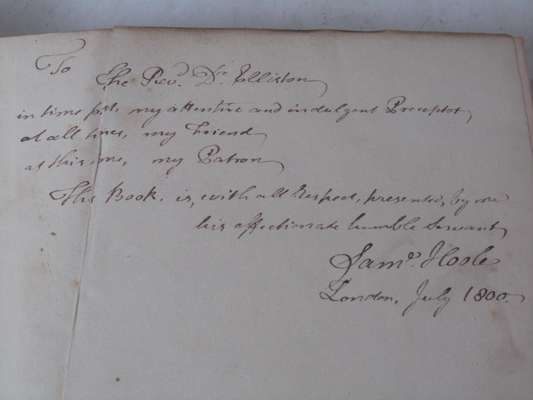 To
The Revd. Dr. Elliston,
in time past, my attentive and indulgent Preceptor,
at all times, my Friend,
at this time, my Patron,
This Book, is, with all respect, presented, by me
his affectionate humble Servant,
Saml. Hoole
London, July 1800.